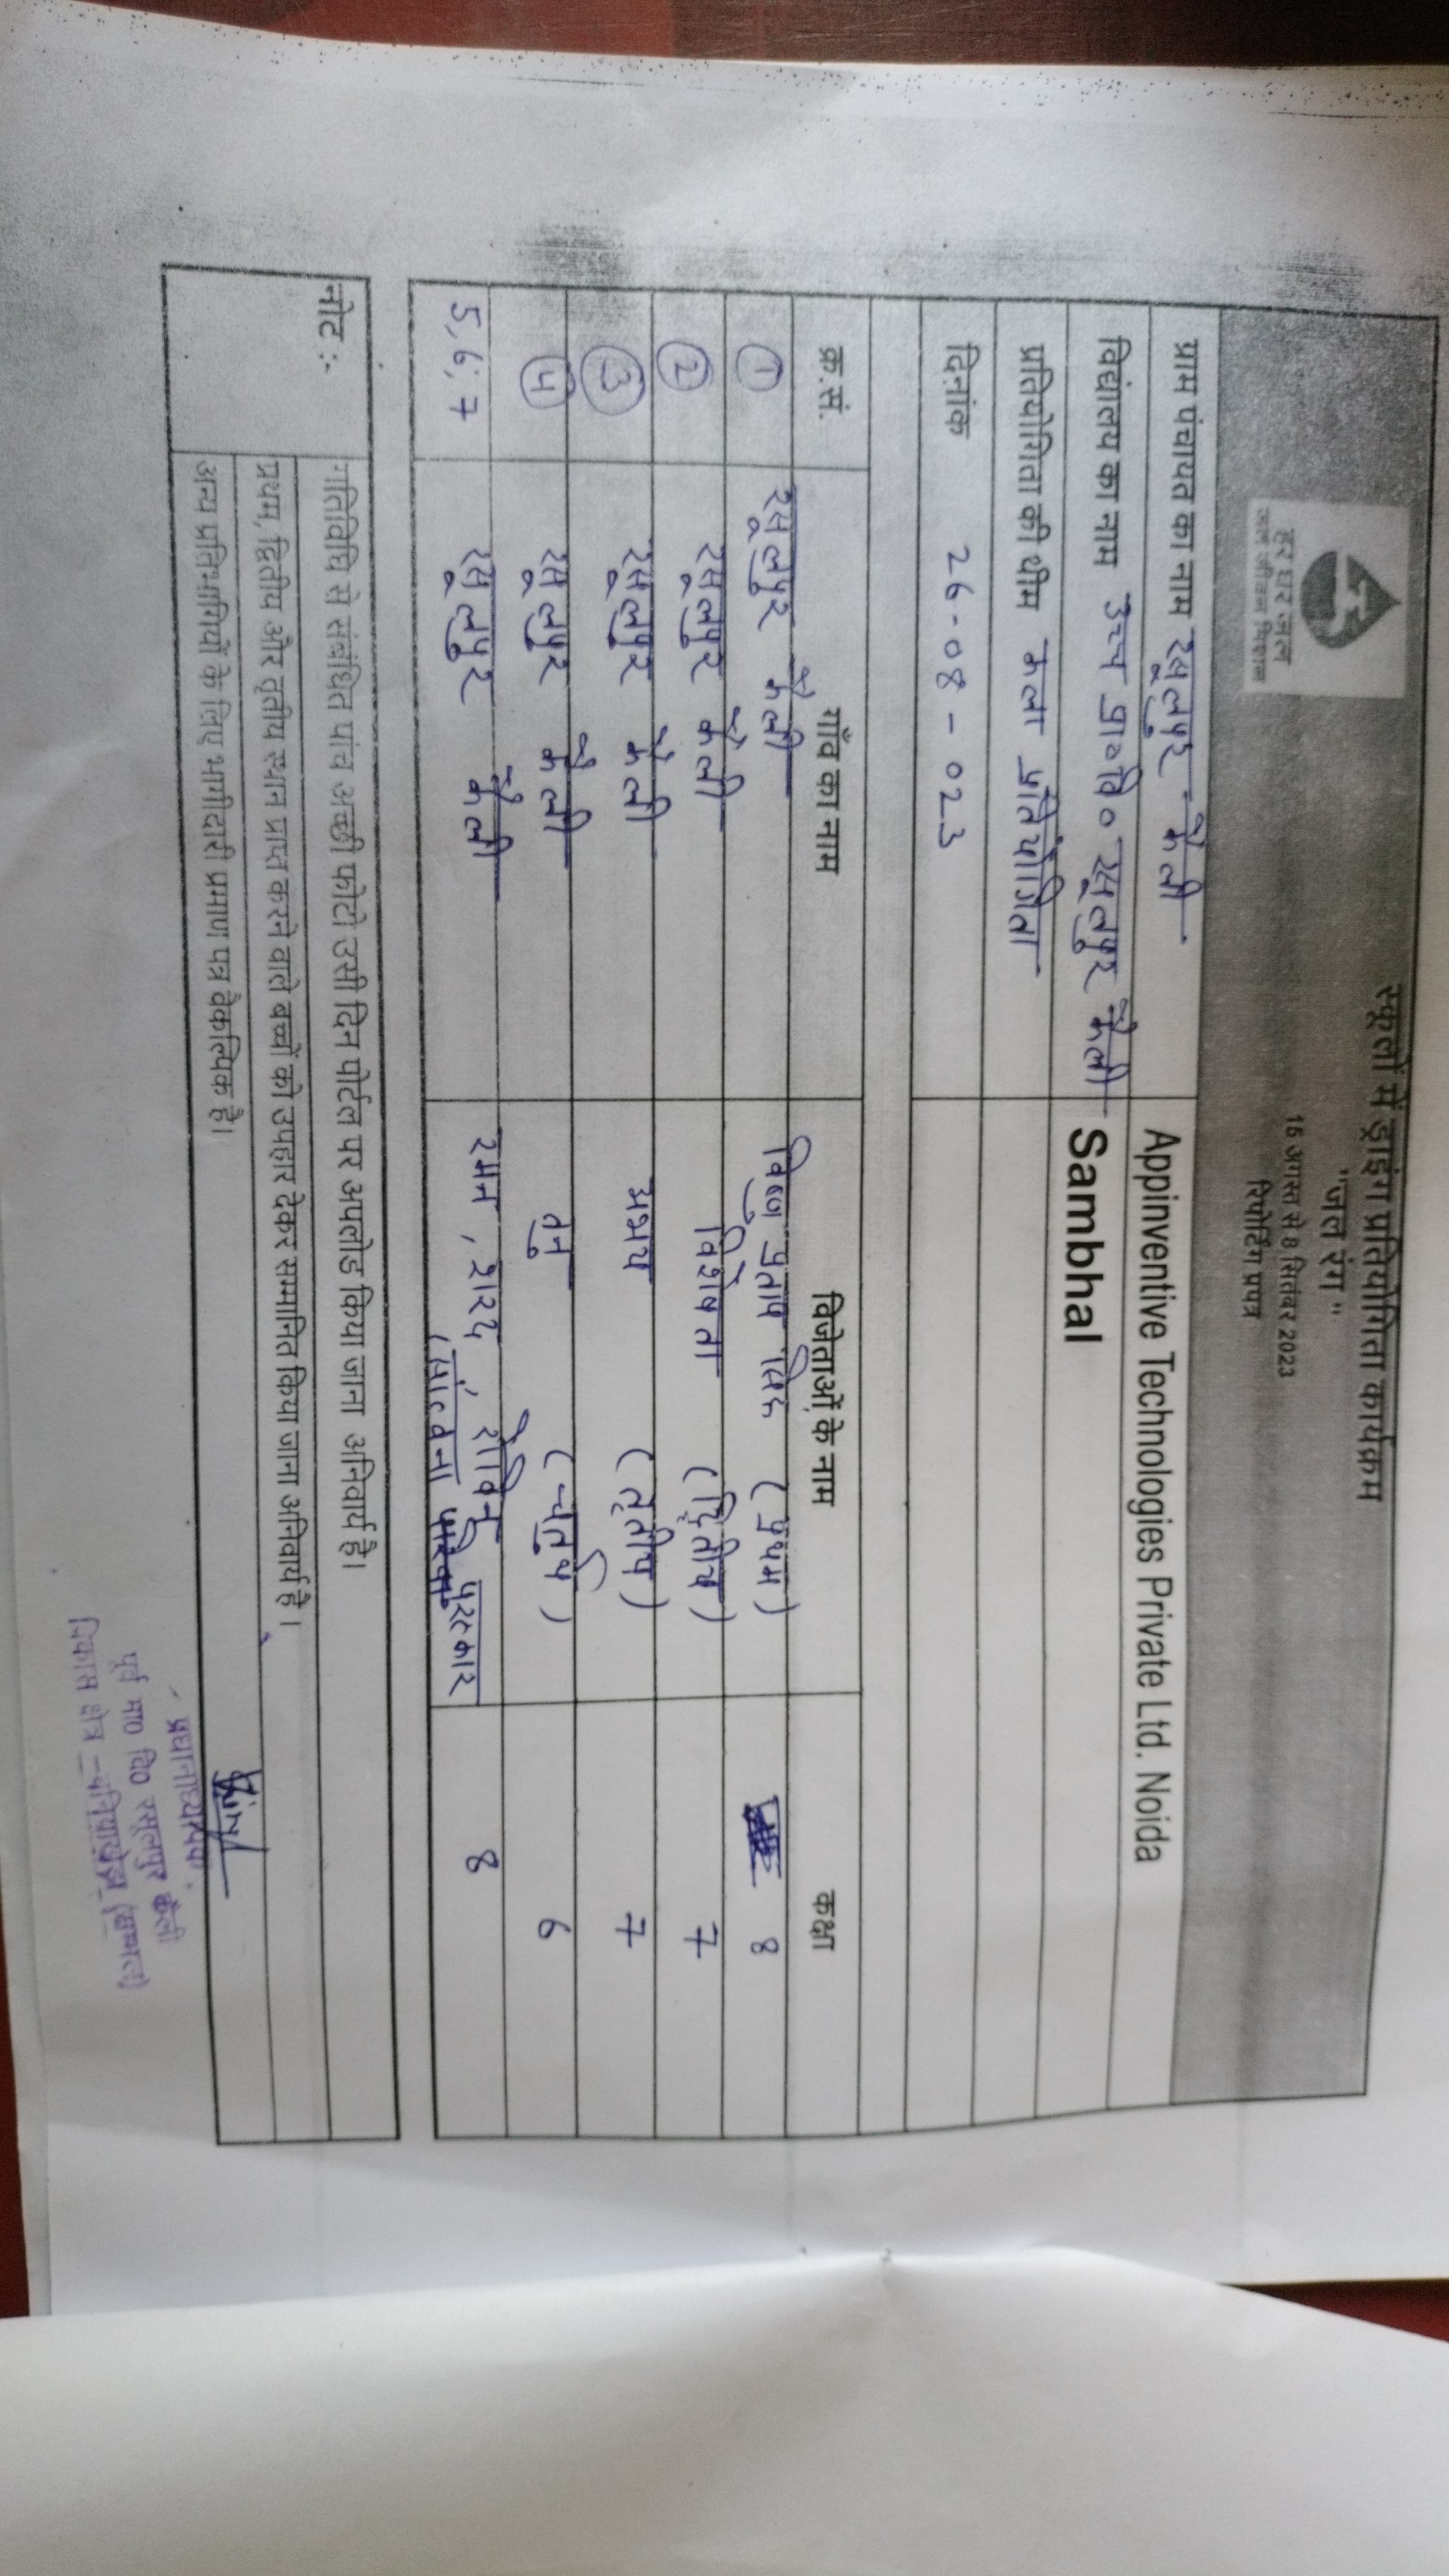 स्कूलों में ड्राइंग प्रतियोगिता कार्यक्रम
"जल रंग"
15 अगस्त से 8 सितंबर 2023
रिपोर्टिंग प्रपत्र
हर घर जल
जल जीवन मिशन
ग्राम पंचायत का नाम रसूलपुर कैली Appinventive Technologies Private Ltd. Noida
विद्यालय का नाम उच्च प्रा० वि० रसूलपुर कैली Sambhal
प्रतियोगिता की थीम कला प्रतियोगिता
दिनांक 26-08-023
क्र.सं. गाँव का नाम विजेताओं के नाम कक्षा
1 रसूलपुर कैली विष्णु प्रताप सिंह (प्रथम) 8
2 रसूलपुर कैली विशेषता (द्वितीय) 7
3 रसूलपुर कैली अभय (तृतीय) 7
4 रसूलपुर कैली तनु (चतुर्थ) 6
5, 6, 7 रसूलपुर कैली रमन, शरद, रोविन 8
(सांत्वना पुरस्कार
नोट :- गतिविधि से संबंधित पांच अच्छी फोटो उसी दिन पोर्टल पर अपलोड किया जाना अनिवार्य है।
प्रथम, द्वितीय और तृतीय स्थान प्राप्त करने वाले बच्चों को उपहार देकर सम्मानित किया जाना अनिवार्य है।
अन्य प्रतिभागियों के लिए भागीदारी प्रमाण पत्र वैकल्पिक है।
प्रधानाध्यापक
पूर्व मा० वि० रसूलपुर कैली
विकास क्षेत्र - बनियाखेड़ा (सम्भल)